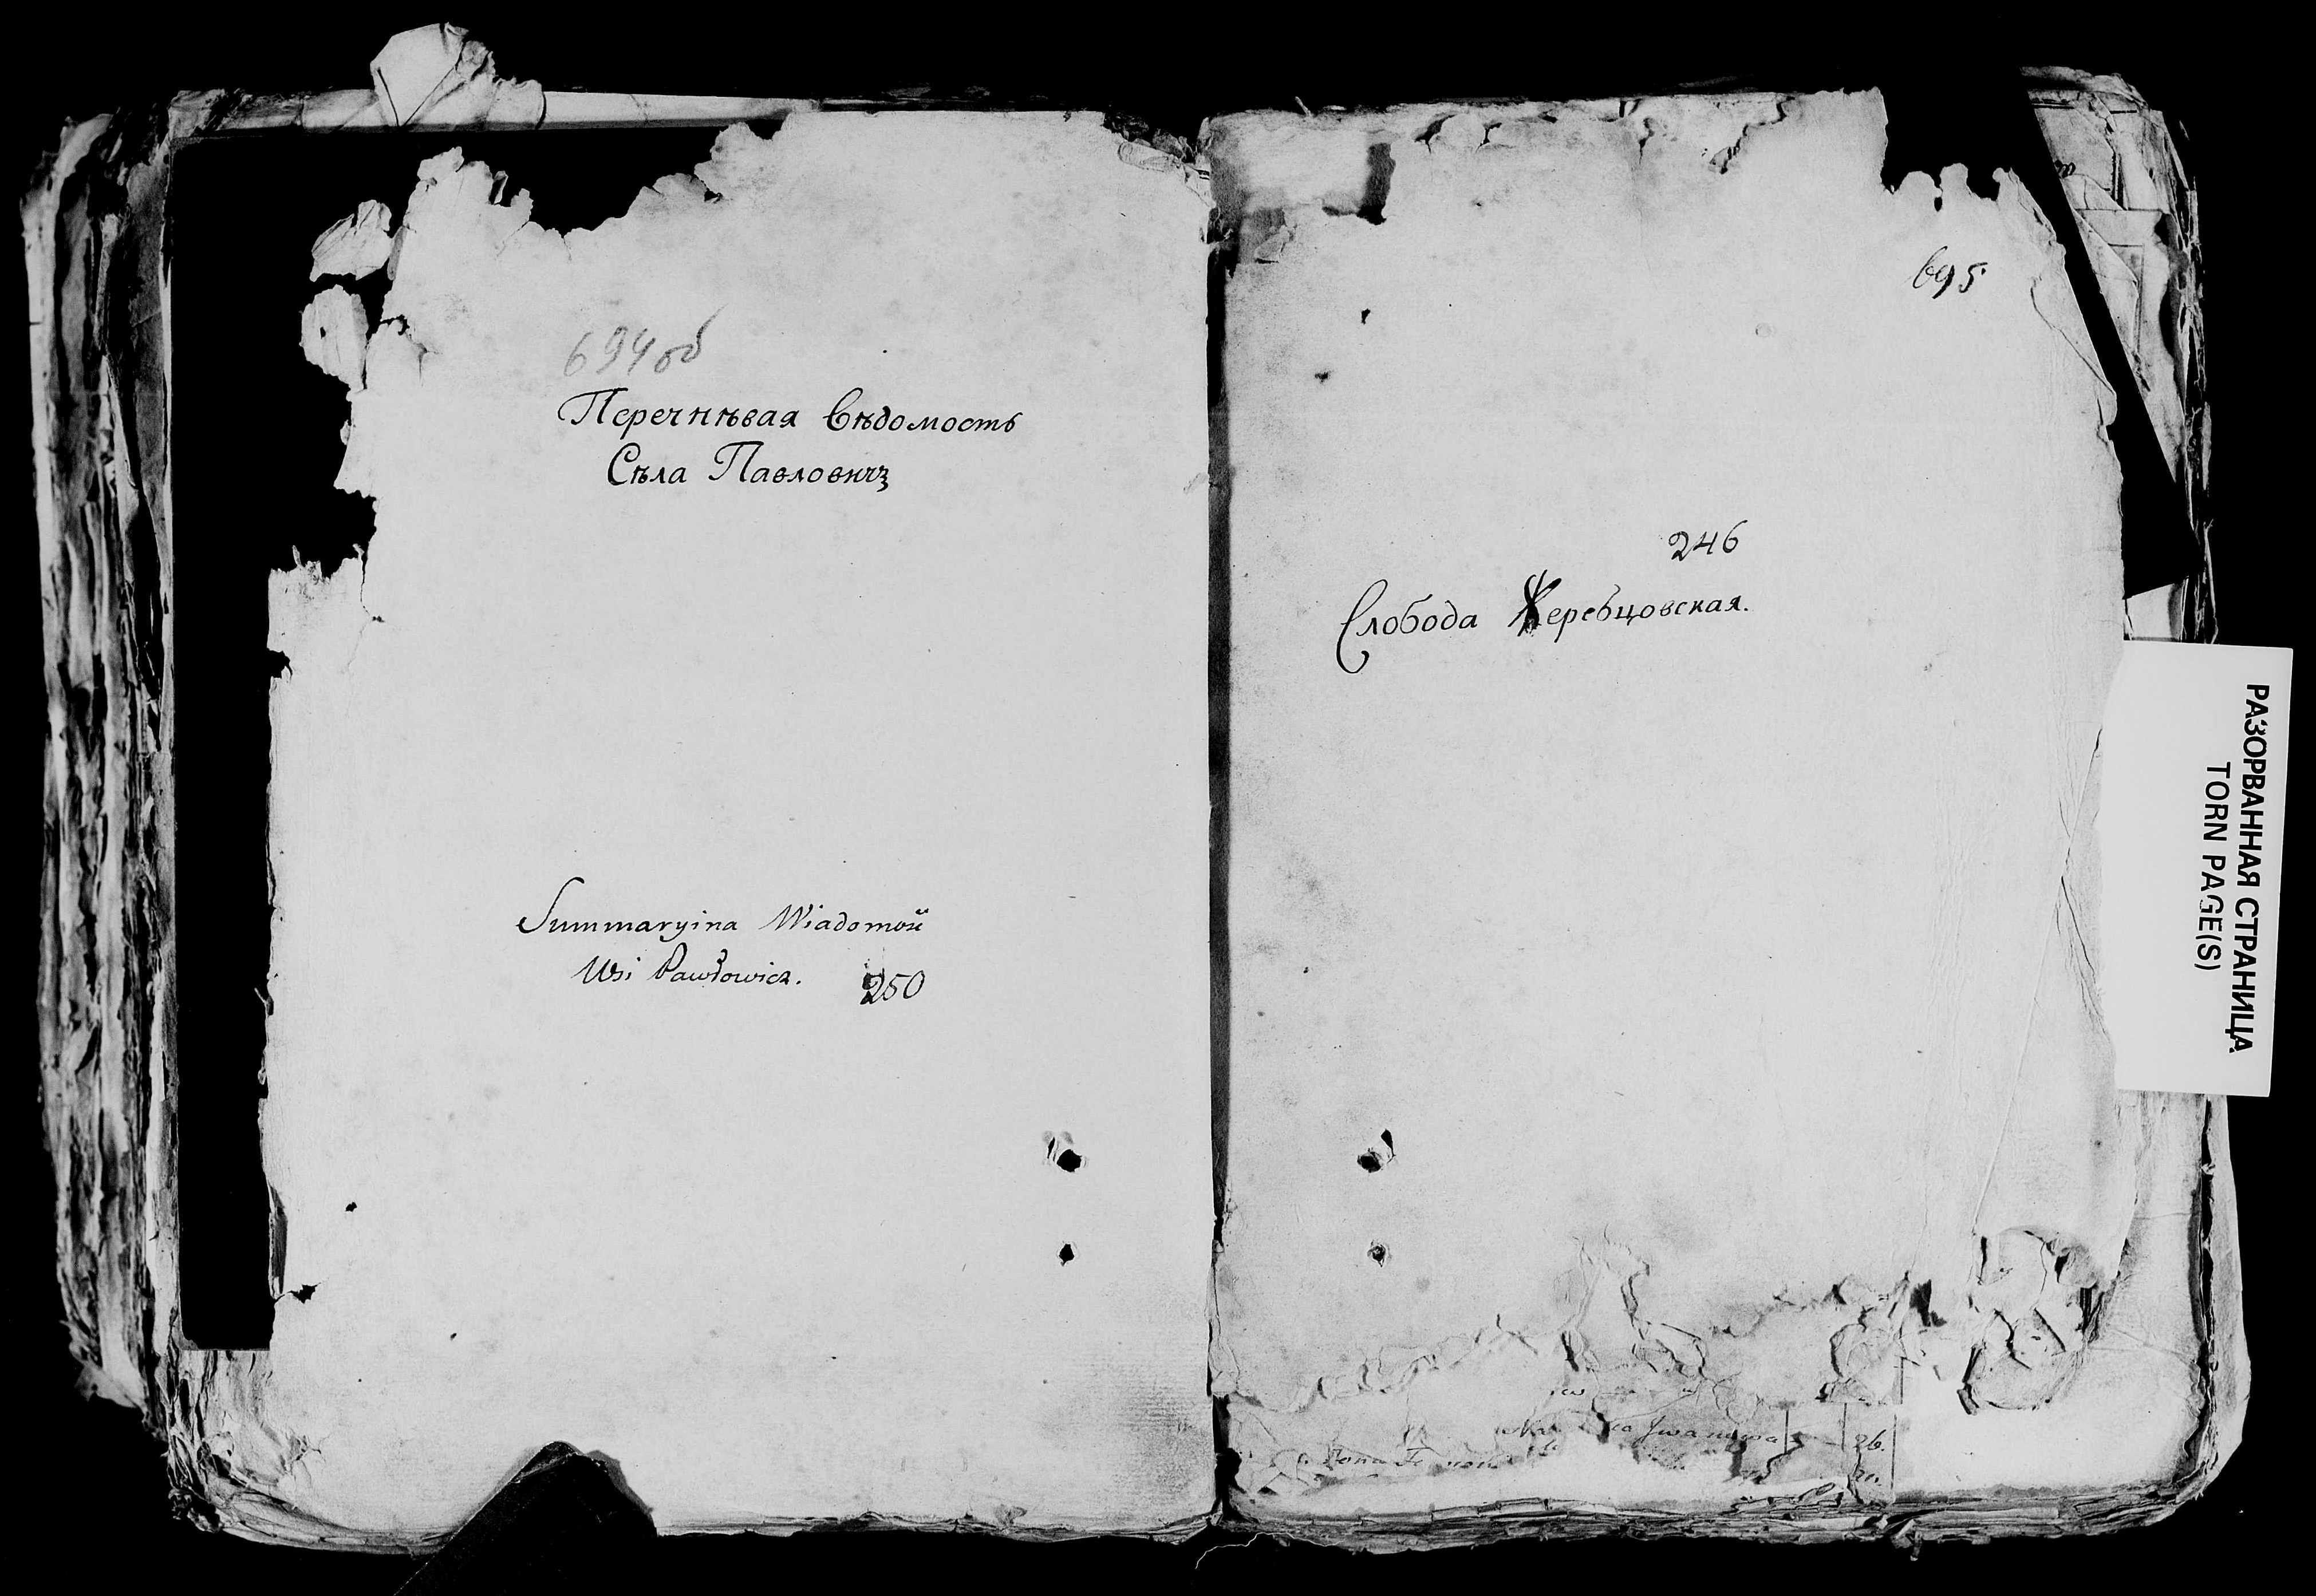 694об
Перечнѣвая Вѣдомость
Сѣла Павловичъ
Summaryina Wiadomość
Wsi Pawłowicz. 250
695
246
Слобода Жеребцовская.
26.
РАЗОРВАННАЯ СТРАНИЦА
TORN PAGE(S)